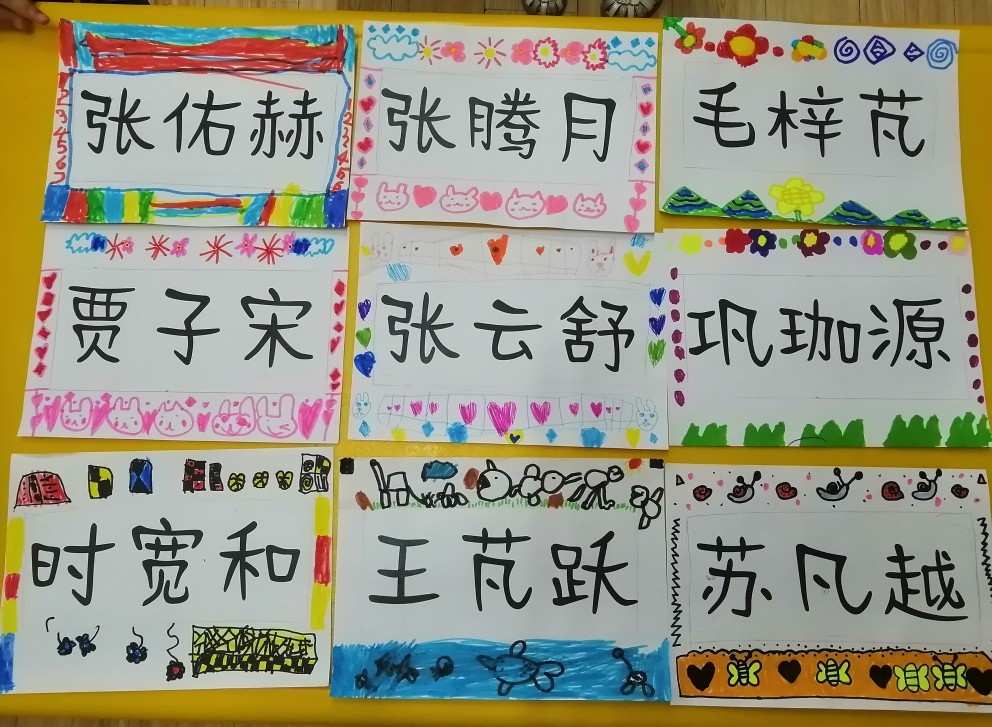 张佑赫
张腾月
毛梓芃
贾子宋
张云舒
巩珈源
时宽和
王芃跃
苏凡越